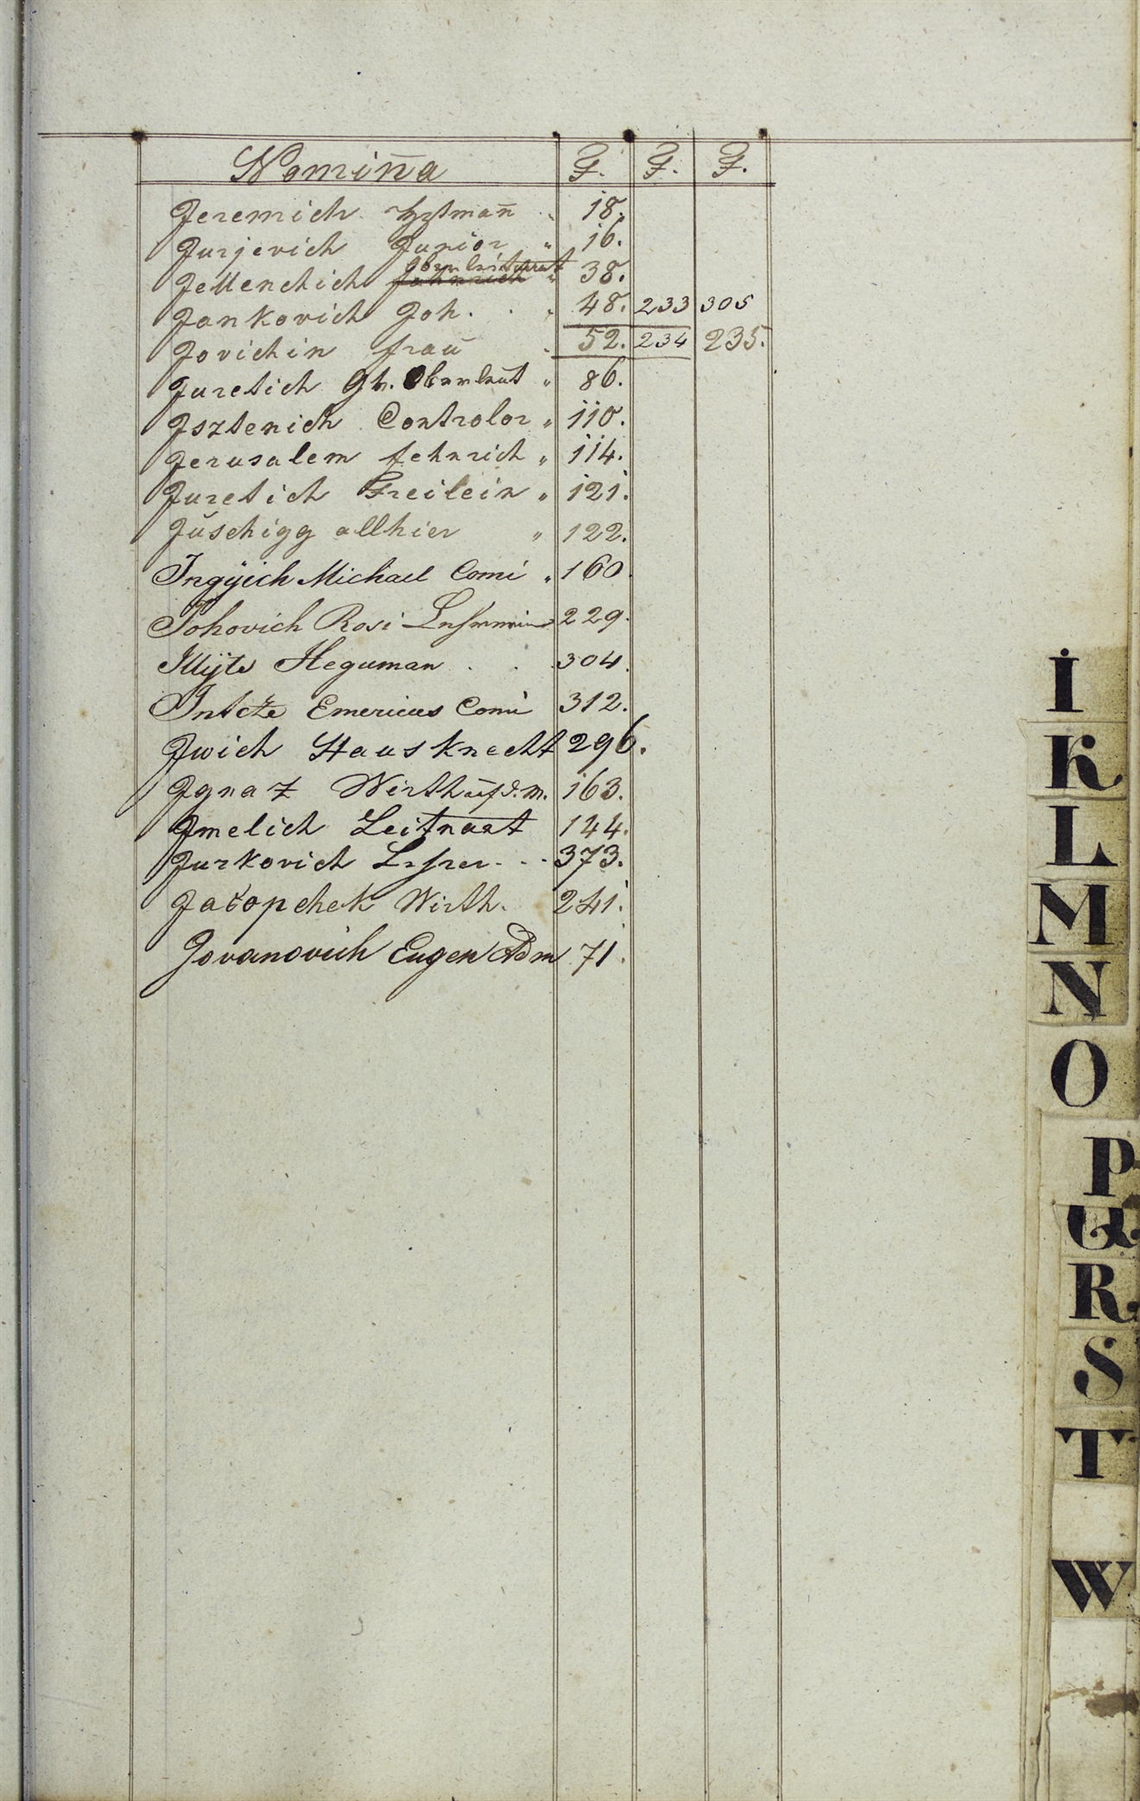 Nomin̄a F. F. F.
Jeremich Hptman̄ " 18.
Jurjevich Junior " 16.
Oberleitenant
Jellenchich fähnrich " 38.
Jankovich Joh. . " 48. 233 305
Jovichin fraū 52. 234 235.
Juretich Gr. Oberleut " 86.
Jsztenich Controlor " 110.
Jerusalem fehnrich " 114.
Juretich Freilein " 121.
Juschigg allhier " 122.
Ingyich Michael Comi " 160.
Johovich Rosi 229.
Illyts Heguman . . 304.
Intcze Emericus Comi 312.
Jwich Hausknecht 296.
Jgnaz Wirth auf d. M. 163.
Jmelich Leitnant 144.
Jurkovich . . 373.
Jacopchek Wirth. 241.
Jovanovich Eugen Adm 71.
I
K
L
M
N
O
P
Q
R
S
T
W